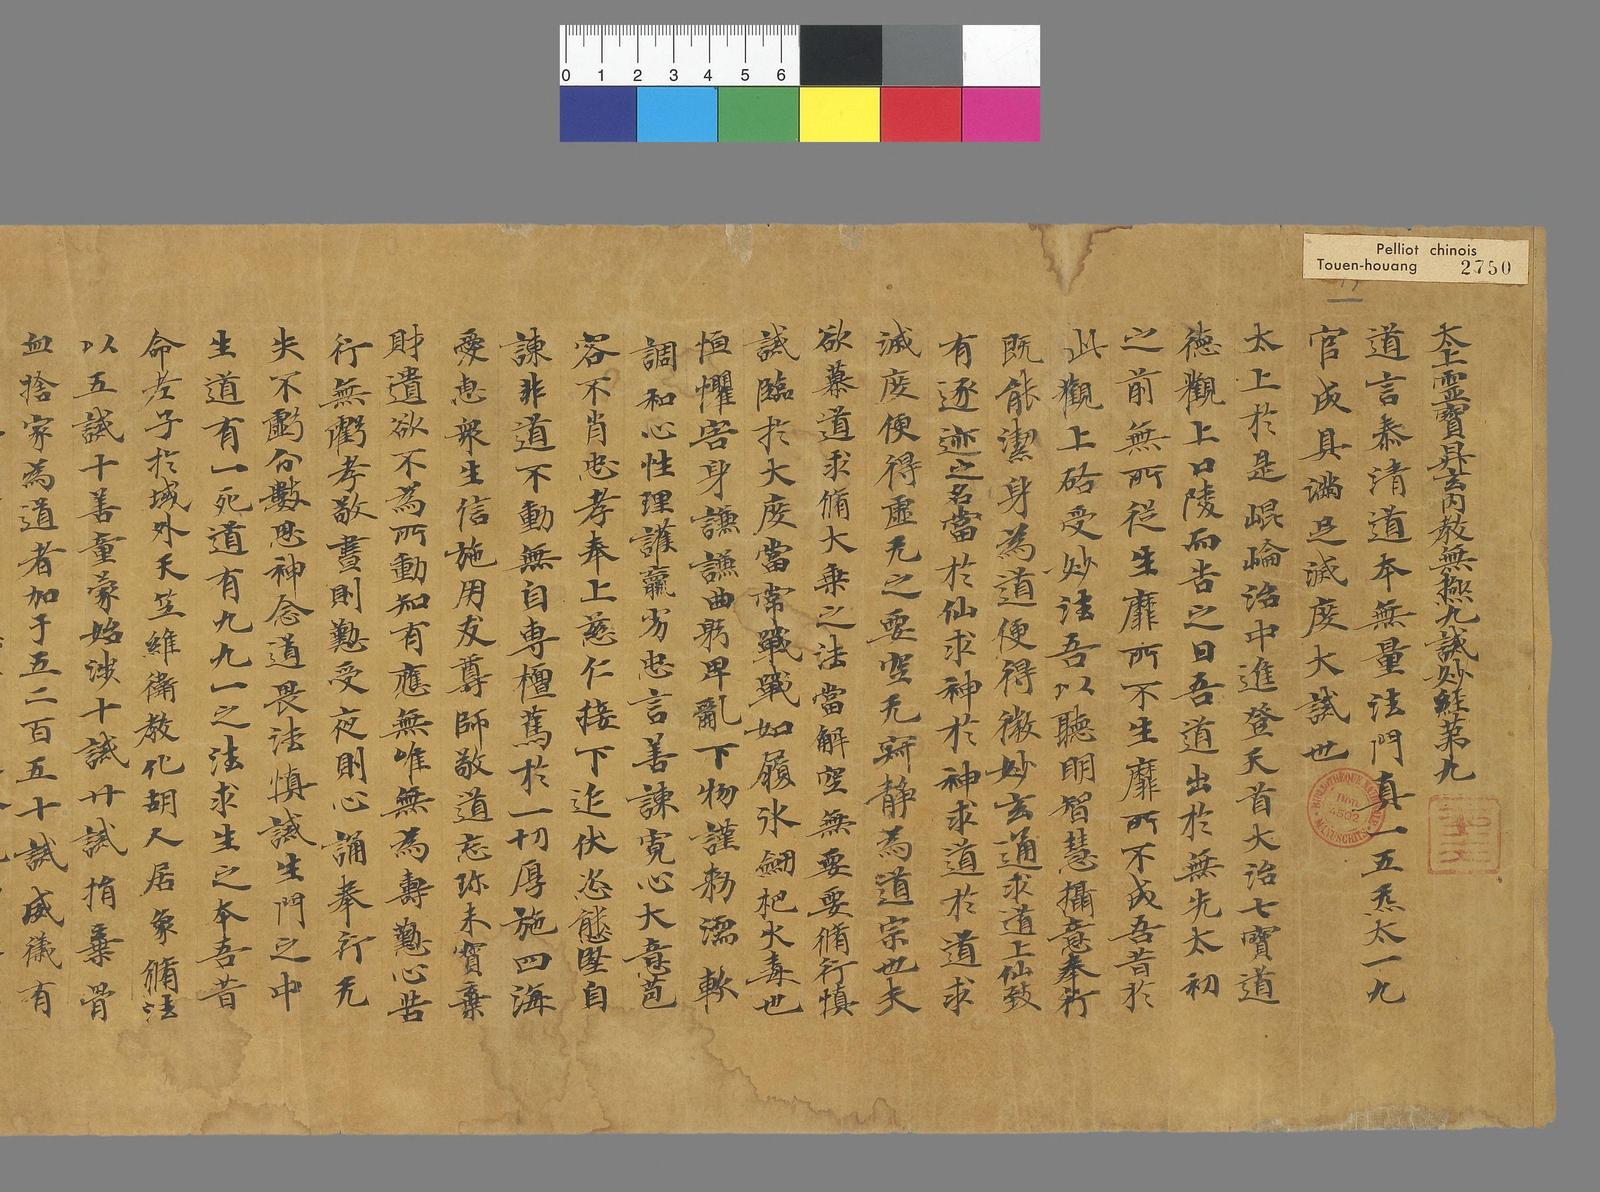 Pelliot chinois
Touen-houang 2750
0 1 2 3 4 5 6
太上靈寶昇玄內教無極九誡妙經第九
道言泰清道本無量法門真一五炁太一九
官成具滿足滅度大誡也
太上於是崐崘治中進登天首大治七寶道
德觀上口陵而告之曰吾道出於無先太初
之前無所從生靡所不生靡所不成吾昔於
此觀上啓受妙法吾以聽明智慧攝意奉行
既能潔身為道便得微妙玄通求道上仙致
有逐迹之名當於仙求神於神求道於道求
滅度便得虛无之要空无寂靜為道宗也夫
欲慕道求脩大乘之法當解空無要要脩行慎
誡臨於大度當常戰戰如履氷劒把火毒也
恒懼害身謙謙曲躬卑辭下物謹勑濡軟
調和心性理護羸劣忠言善諫寬心大意苞
容不肖忠孝奉上慈仁接下追伏恣態堅自
諫非道不動無自專擅篤於一切厚施四海
愛惠衆生信施用友尊師敬道忘珎未寶棄
財遺欲不為所動知有應無唯無為壽懃心苦
行無虧孝敬晝則懃受夜則心誦奉行无
失不虧分數思神念道畏法慎誡生門之中
生道有一死道有九九一之法求生之本吾昔
命老子於域外天竺維衛教化胡人居象脩法
以五誡十善童蒙始涉十誡廿誡捐棄骨
血捨家為道者加于五二百五十誡威儀有